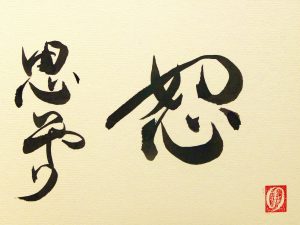 恕
思やり